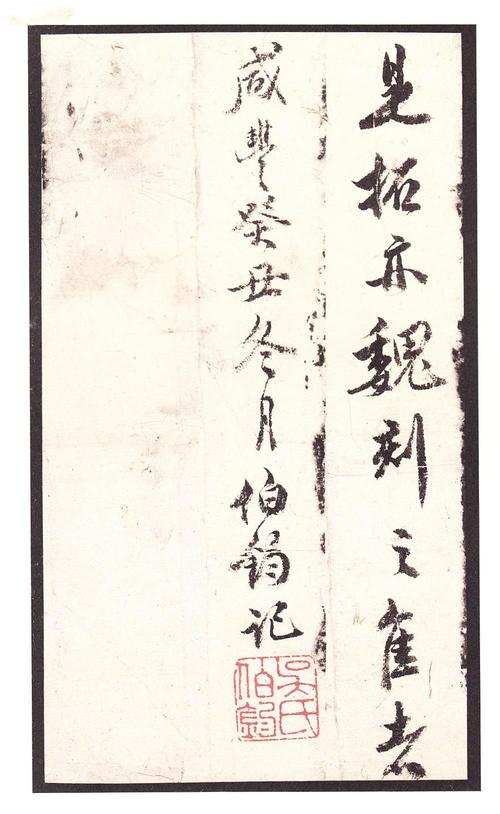 是拓亦魏刻之佳者
咸豐癸丑冬月伯鈞記
吳氏伯鈞